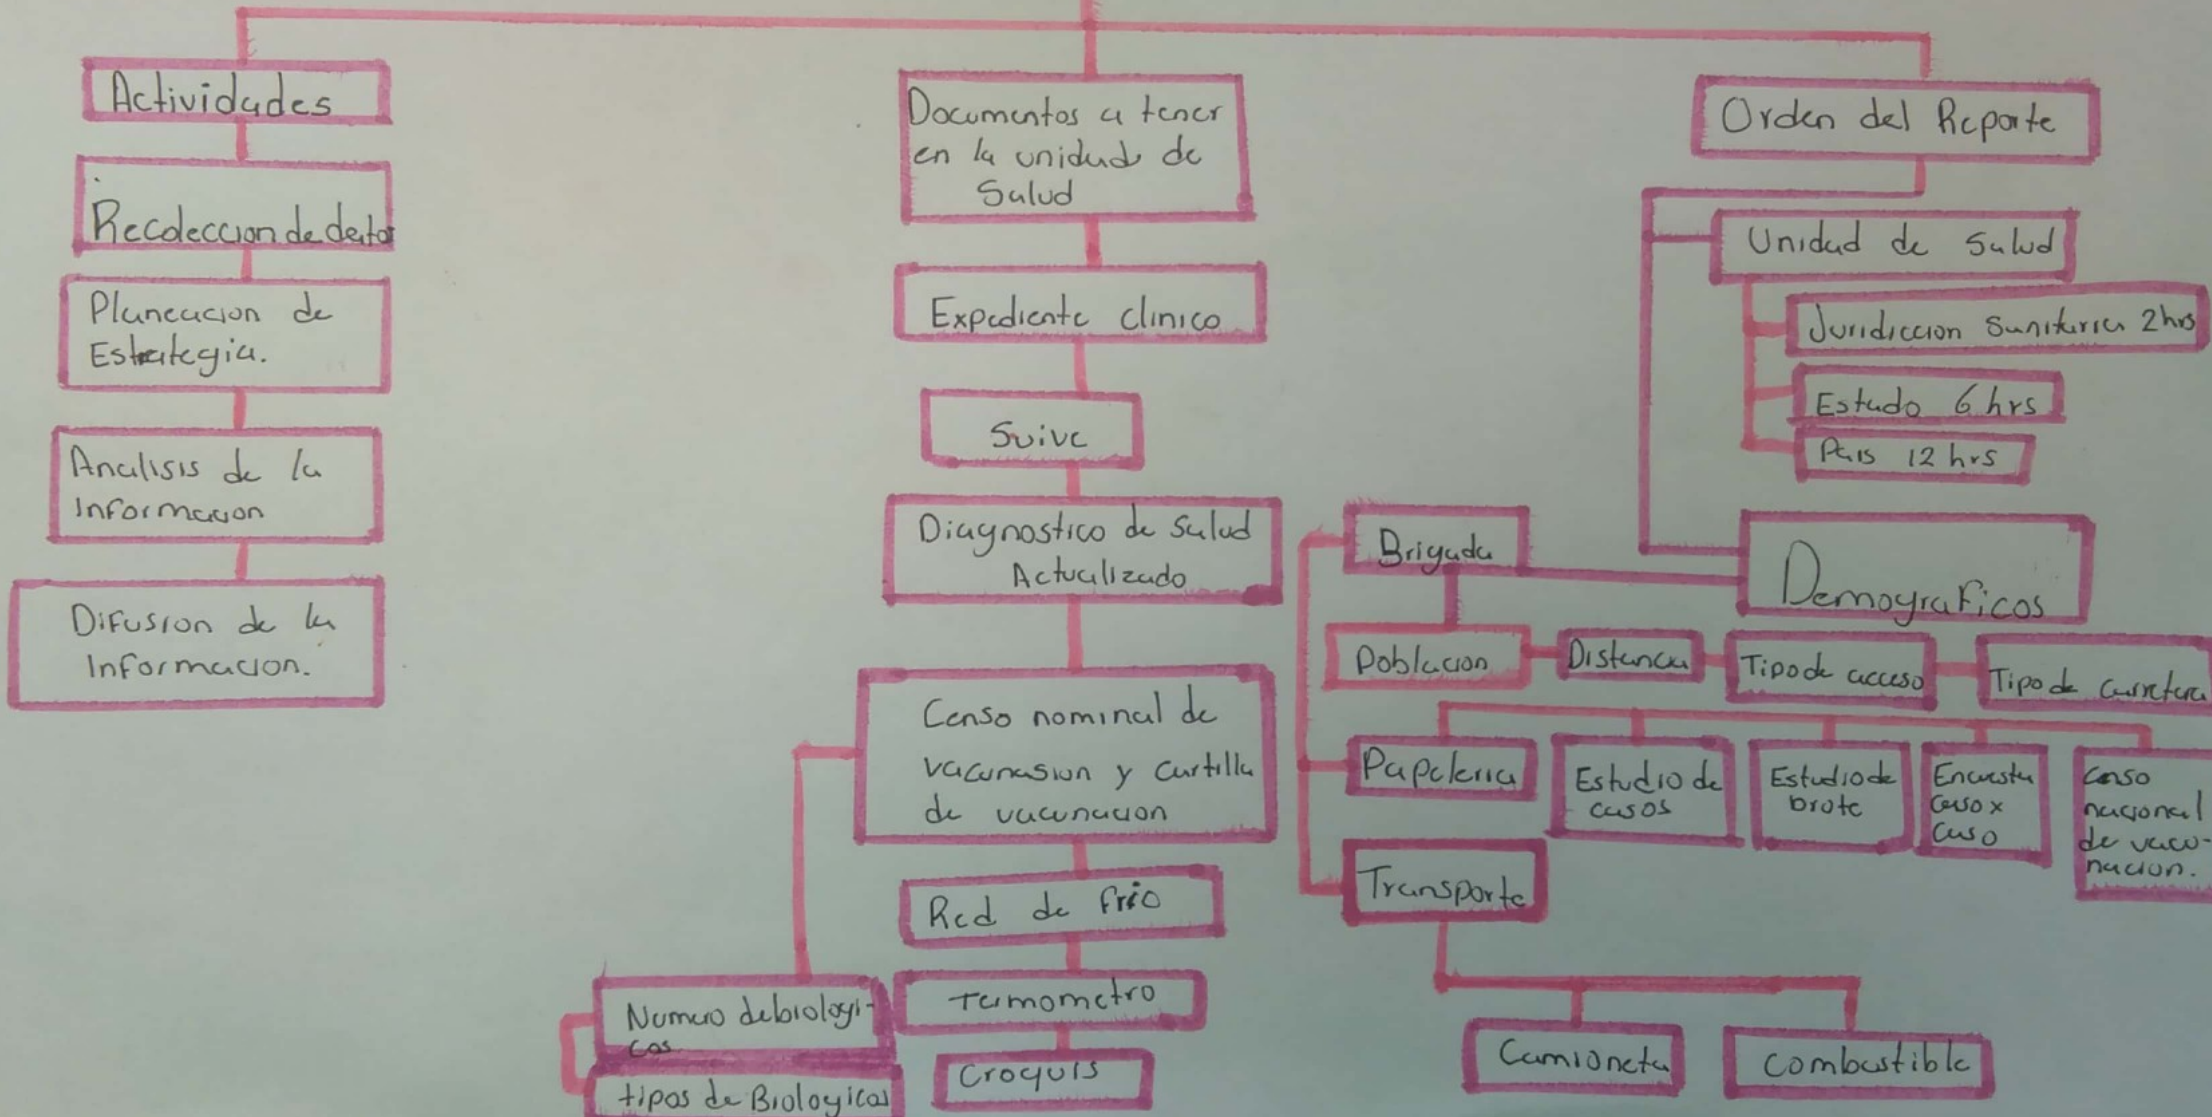 Actividades
Recoleccion de datos
Planeacion de
Estrategia.
Analisis de la
Informacion
Difusion de la
Informacion.
Documentos a tener
en la unidad de
Salud
Expediente clinico
Suive
Diagnostico de Salud
Actualizado
Censo nominal de
vacunasion y cartilla
de vacunacion
Numero debiologi-
cos
tipos de Biologicos
Red de frio
Termometro
Croquis
Orden del Reporte
Unidad de Salud
Juridiccion Sanitaria 2hrs
Estado 6 hrs
Pais 12 hrs
Demograficos
Brigada
Poblacion
Distancia
Tipo de acceso
Tipo de carretera
Papeleria
Estudio de
casos
Estudio de
brote
Encuesta
caso x
caso
Censo
nacional
de vacu-
nacion.
Transporte
Camioneta
Combustible